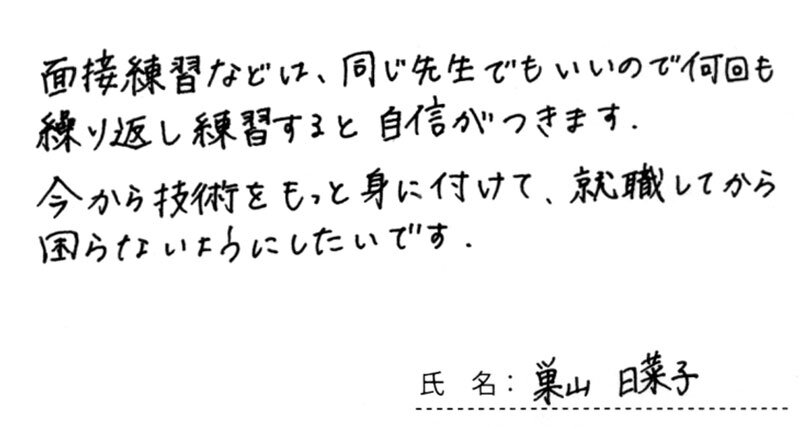 面接練習などは、同じ先生でもいいので何回も
繰り返し練習すると自信がつきます.
今から技術をもっと身に付けて、就職してから
困らないようにしたいです.
氏 名: 巣山 日菜子